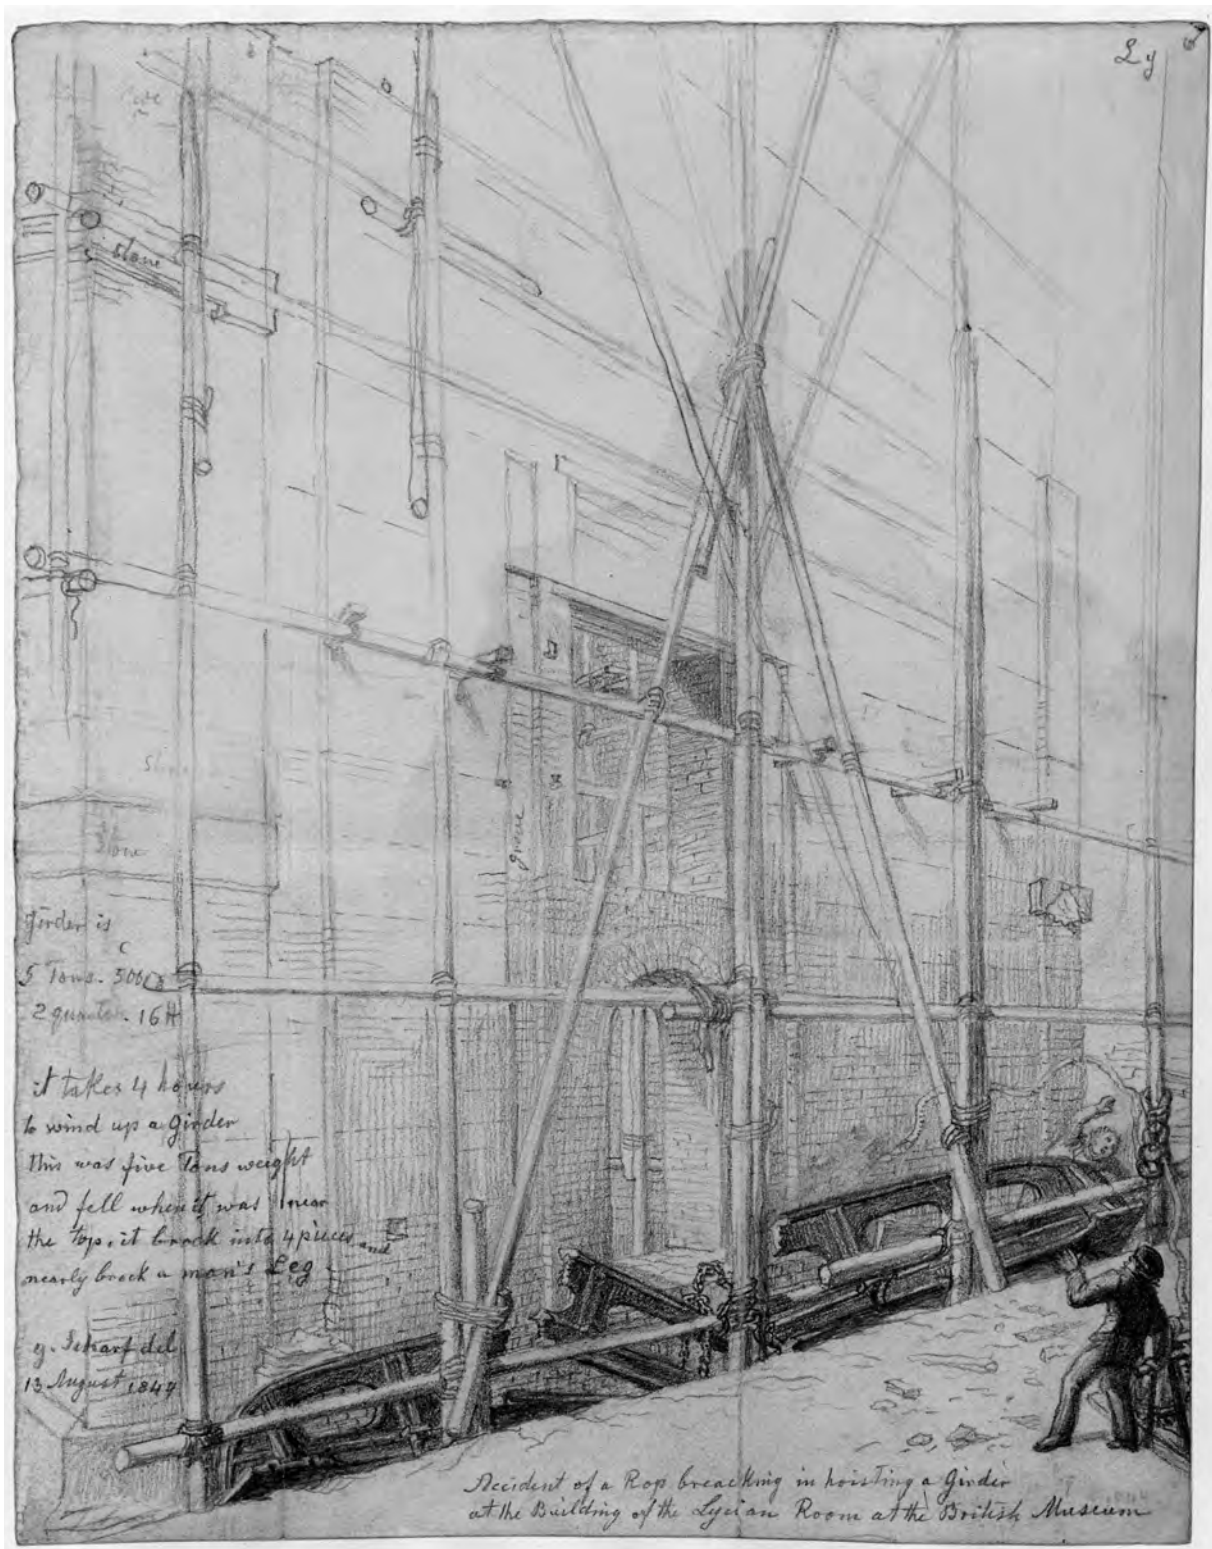 Ly
stone
stone
grove
Girder is
C
5 Tons. 500
2 quarters. 16 H
it takes 4 hours
to wind up a Girder
this was five Tons weight
and fell when it was near
the top, it brack into 4 pieces and
nearly brack a man's Leg
G. Scharf del
13 August 1847
Accident of a Rop breacking in hoisting a Girder
at the Building of the Lycian Room at the British Museum